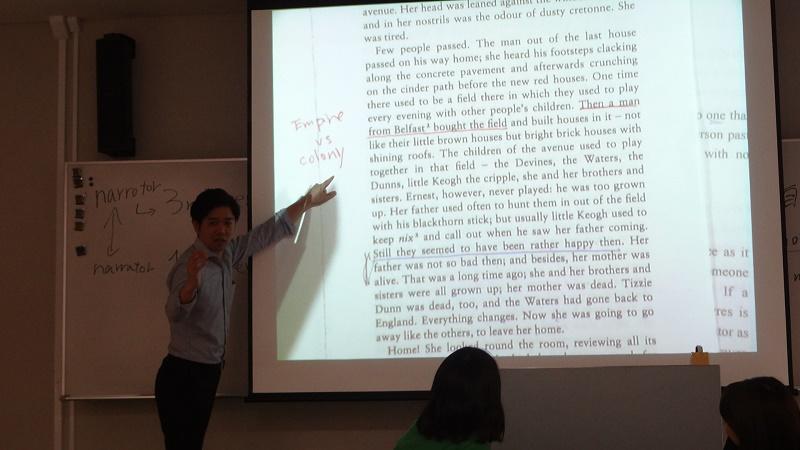 avenue. Her head was leaned against the
and in her nostrils was the odour of dusty cretonne. She
was tired.
Few people passed. The man out of the last house
passed on his way home; she heard his footsteps clacking
along the concrete pavement and afterwards crunching
on the cinder path before the new red houses. One time
there used to be a field there in which they used to play
every evening with other people's children. Then a man
from Belfast² bought the field and built houses in it – not
like their little brown houses but bright brick houses with
shining roofs. The children of the avenue used to play
together in that field – the Devines, the Waters, the
Dunns, little Keogh the cripple, she and her brothers and
sisters. Ernest, however, never played: he was too grown
up. Her father used often to hunt them in out of the field
with his blackthorn stick; but usually little Keogh used to
keep nix³ and call out when he saw her father coming.
Still they seemed to have been rather happy then. Her
father was not so bad then; and besides, her mother was
alive. That was a long time ago; she and her brothers and
sisters were all grown up; her mother was dead. Tizzie
Dunn was dead, too, and the Waters had gone back to
England. Everything changes. Now she was going to go
away like the others, to leave her home.
Home! She looked round the room, reviewing all its
Empire
vs
colony
narrator
3
narrator
one tha
rson past
with no
as it
meone
If a
res is
tor as